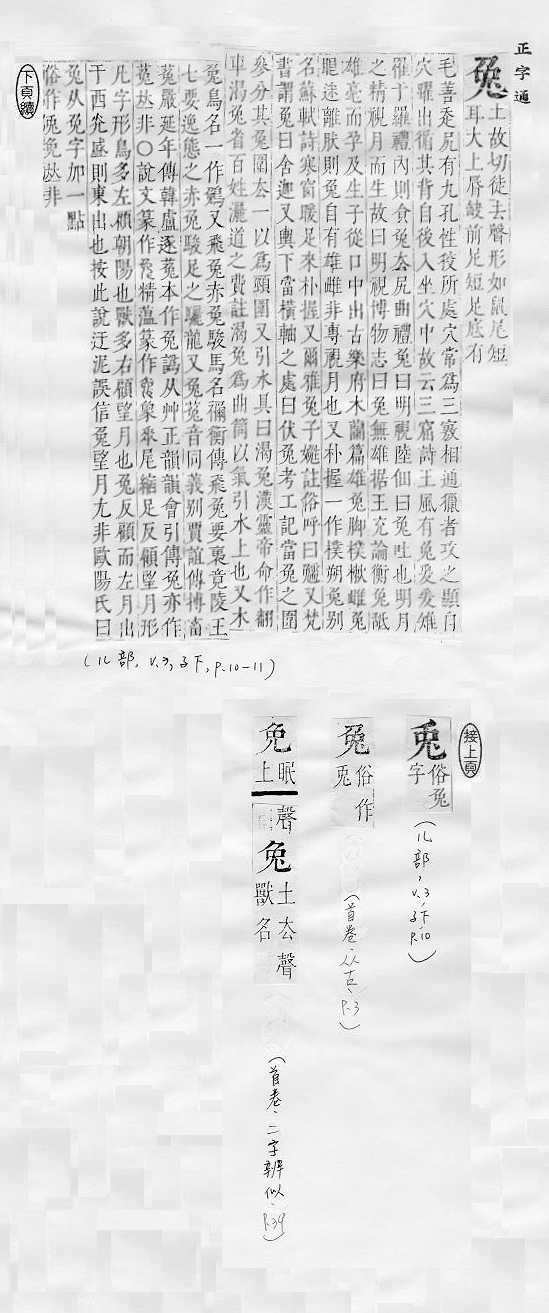 正字通
兔
土故切徒去聲形如鼠尾短
耳大上唇缺前足短足底有
毛善走尻有九孔性狡所處穴常爲三竅相通獵者攻之顯自
穴躍出循其背自後入坐穴中故云三窟詩王風有兔爰爰雉
罹于羅禮內則食兔去尻曲禮兔曰明視陸佃曰兔吐也明月
之精視月而生故曰明視博物志曰兔無雄据王充論衡兔舐
雄毫而孕及生子從口中出古樂府木蘭篇雄兔脚樸樕雌兔
眼迷離則兔自有雄雌非專視月也又朴握一作樸朔兔别
名蘇軾詩寒窗暖足來朴握又爾雅兔子嬎註俗呼曰又梵
書謂兔曰舍迦又輿下當橫軸之處曰伏兔考工記當兔之圍
參分其兔圍去一以爲頸圍又引水具曰渴兔漢靈帝命作翻
車渴兔省百姓灑道之費註渴兔爲曲筒以氣引水上也又木
兔鳥名一作鵵又飛兔赤兔駿馬名禰衡傳飛兔要褭竟陵王
七要逸態之赤兔駿足之驪龍又兔菟音同義别賈誼傳搏畜
菟嚴延年傳韓盧逐菟本作兔譌从艸正韻韻會引傳兔亦作
菟𠀤非○說文篆作精薀篆作象尾縮足反顧望月形
凡字形鳥多左顧朝陽也獸多右顧望月也兔反顧而左月出
于西兊盛則東出也按此說迂泥誤信兔望月尢非歐陽氏曰
兔从免字加一點
俗作𠀤非
下頁續
(儿部, v.3, 子下, p.10-11)
接上頁
兎
俗兔
字
(儿部, v.3, 子下, p.10)
兔
俗作
兎
(首卷,从古, p.3)
免
眠
上
聲
兔
土去聲
獸名
(首卷、二字辨似、p.39)